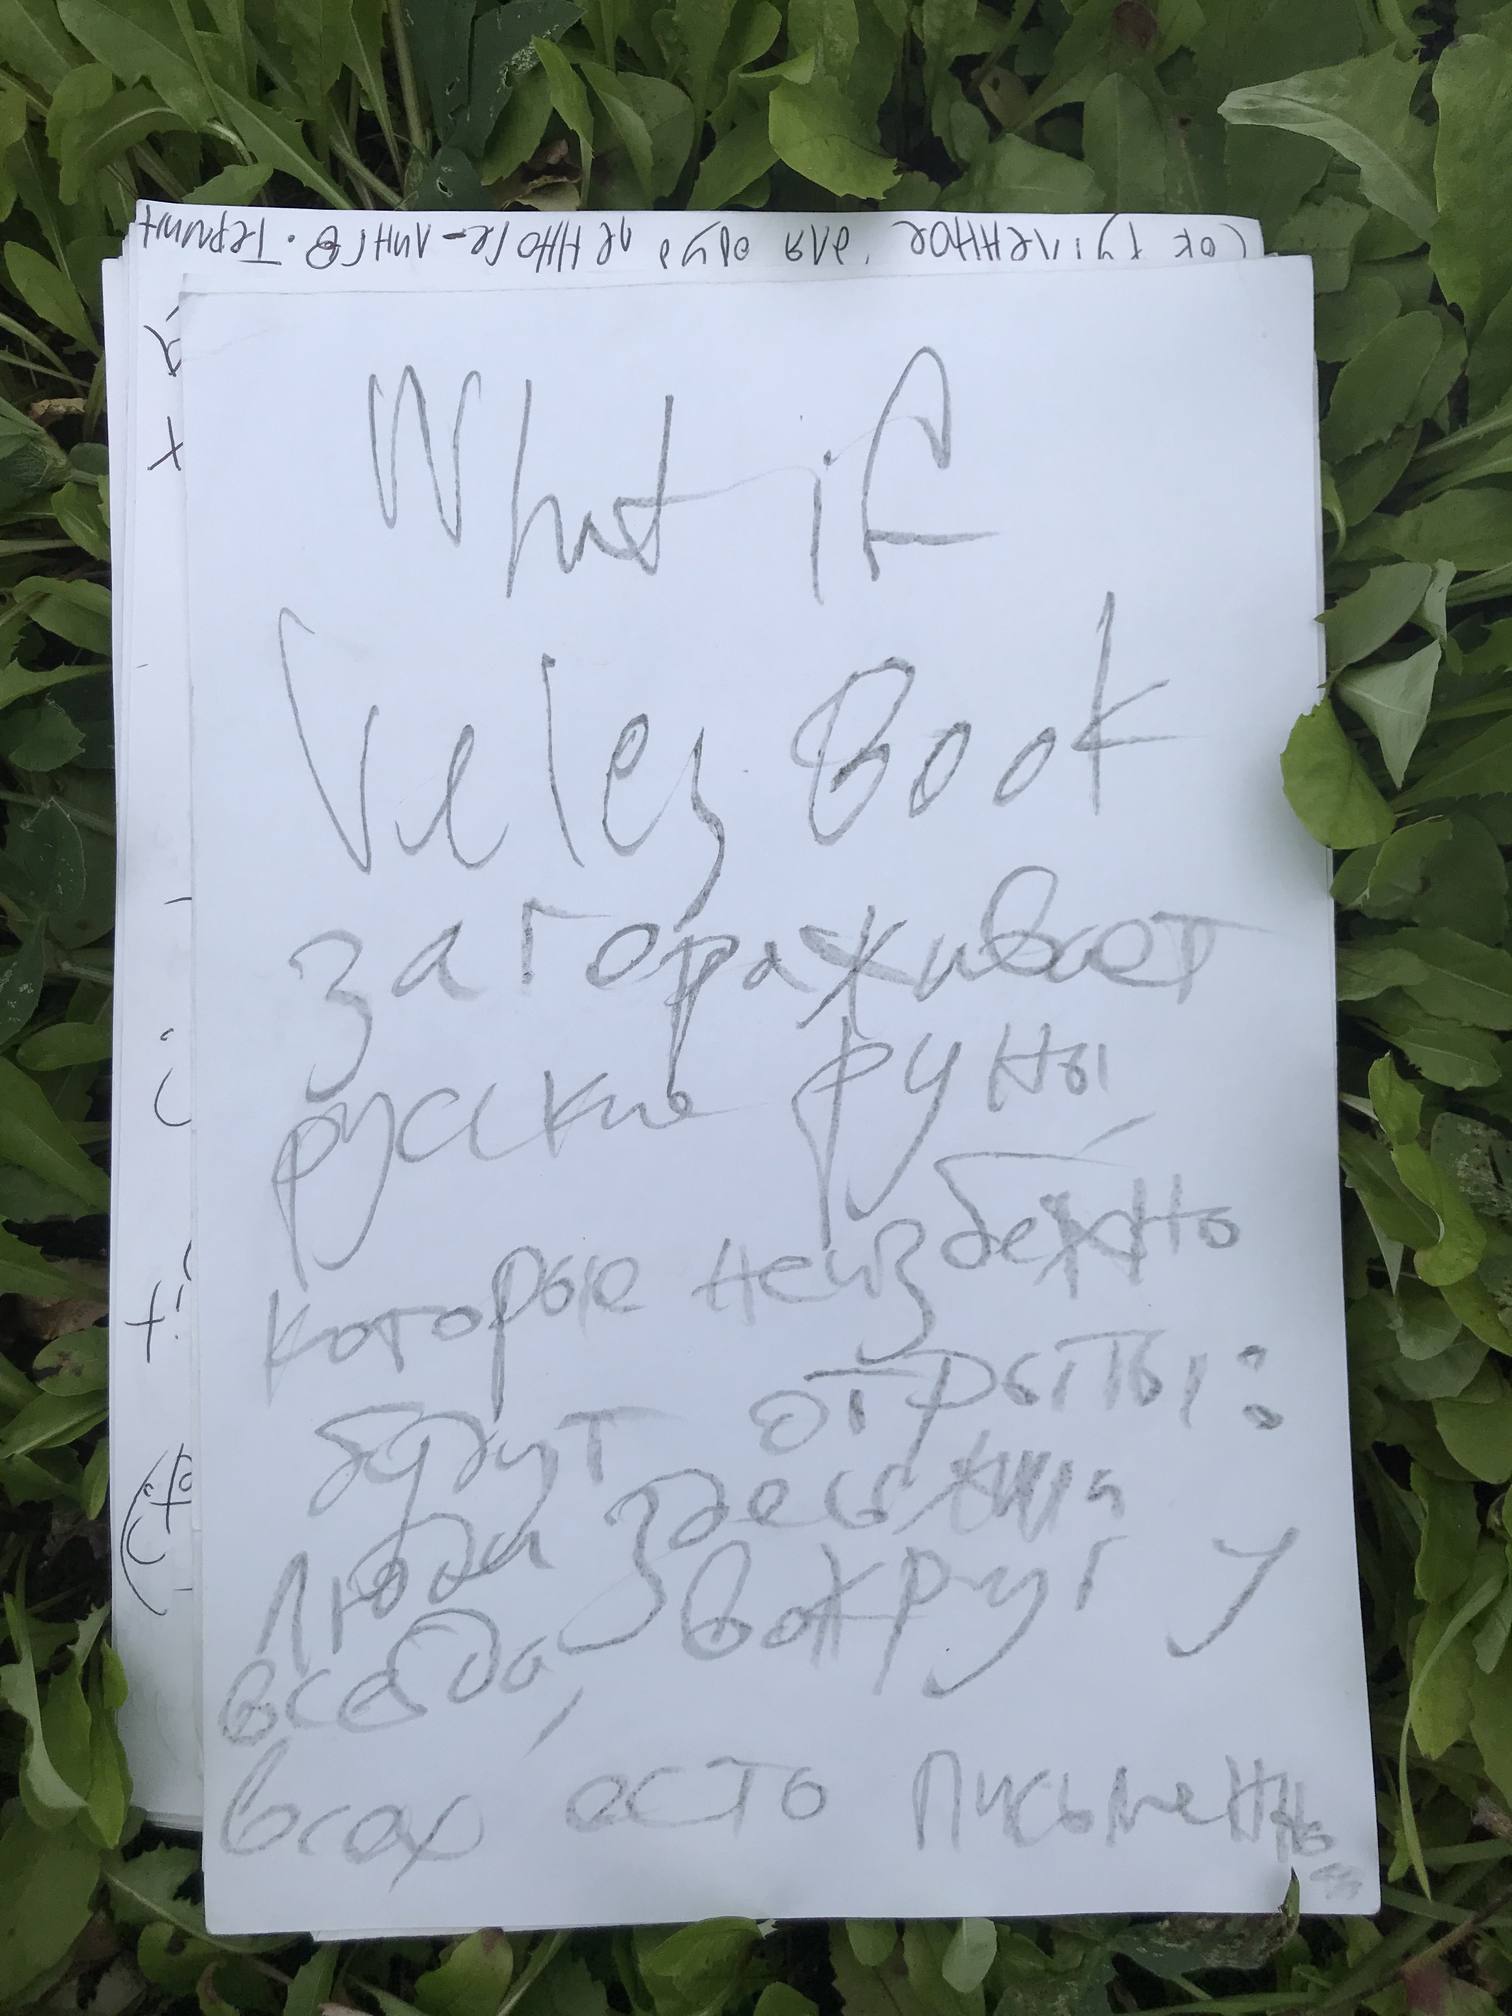 What if
Velez Book
загораживает
русские руны
которые неизбежно
будут отрыты:
Люди здесь жили
всегда, вокруг у
всех есть письменно